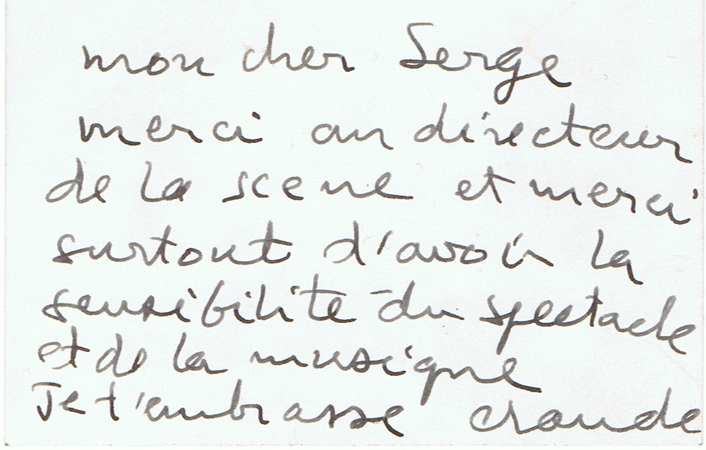 mon cher Serge
merci au directeur
de la scene et merci
surtout d'avoir la
sensibilite du spectacle
et de la musique
Je t'embrasse Claude